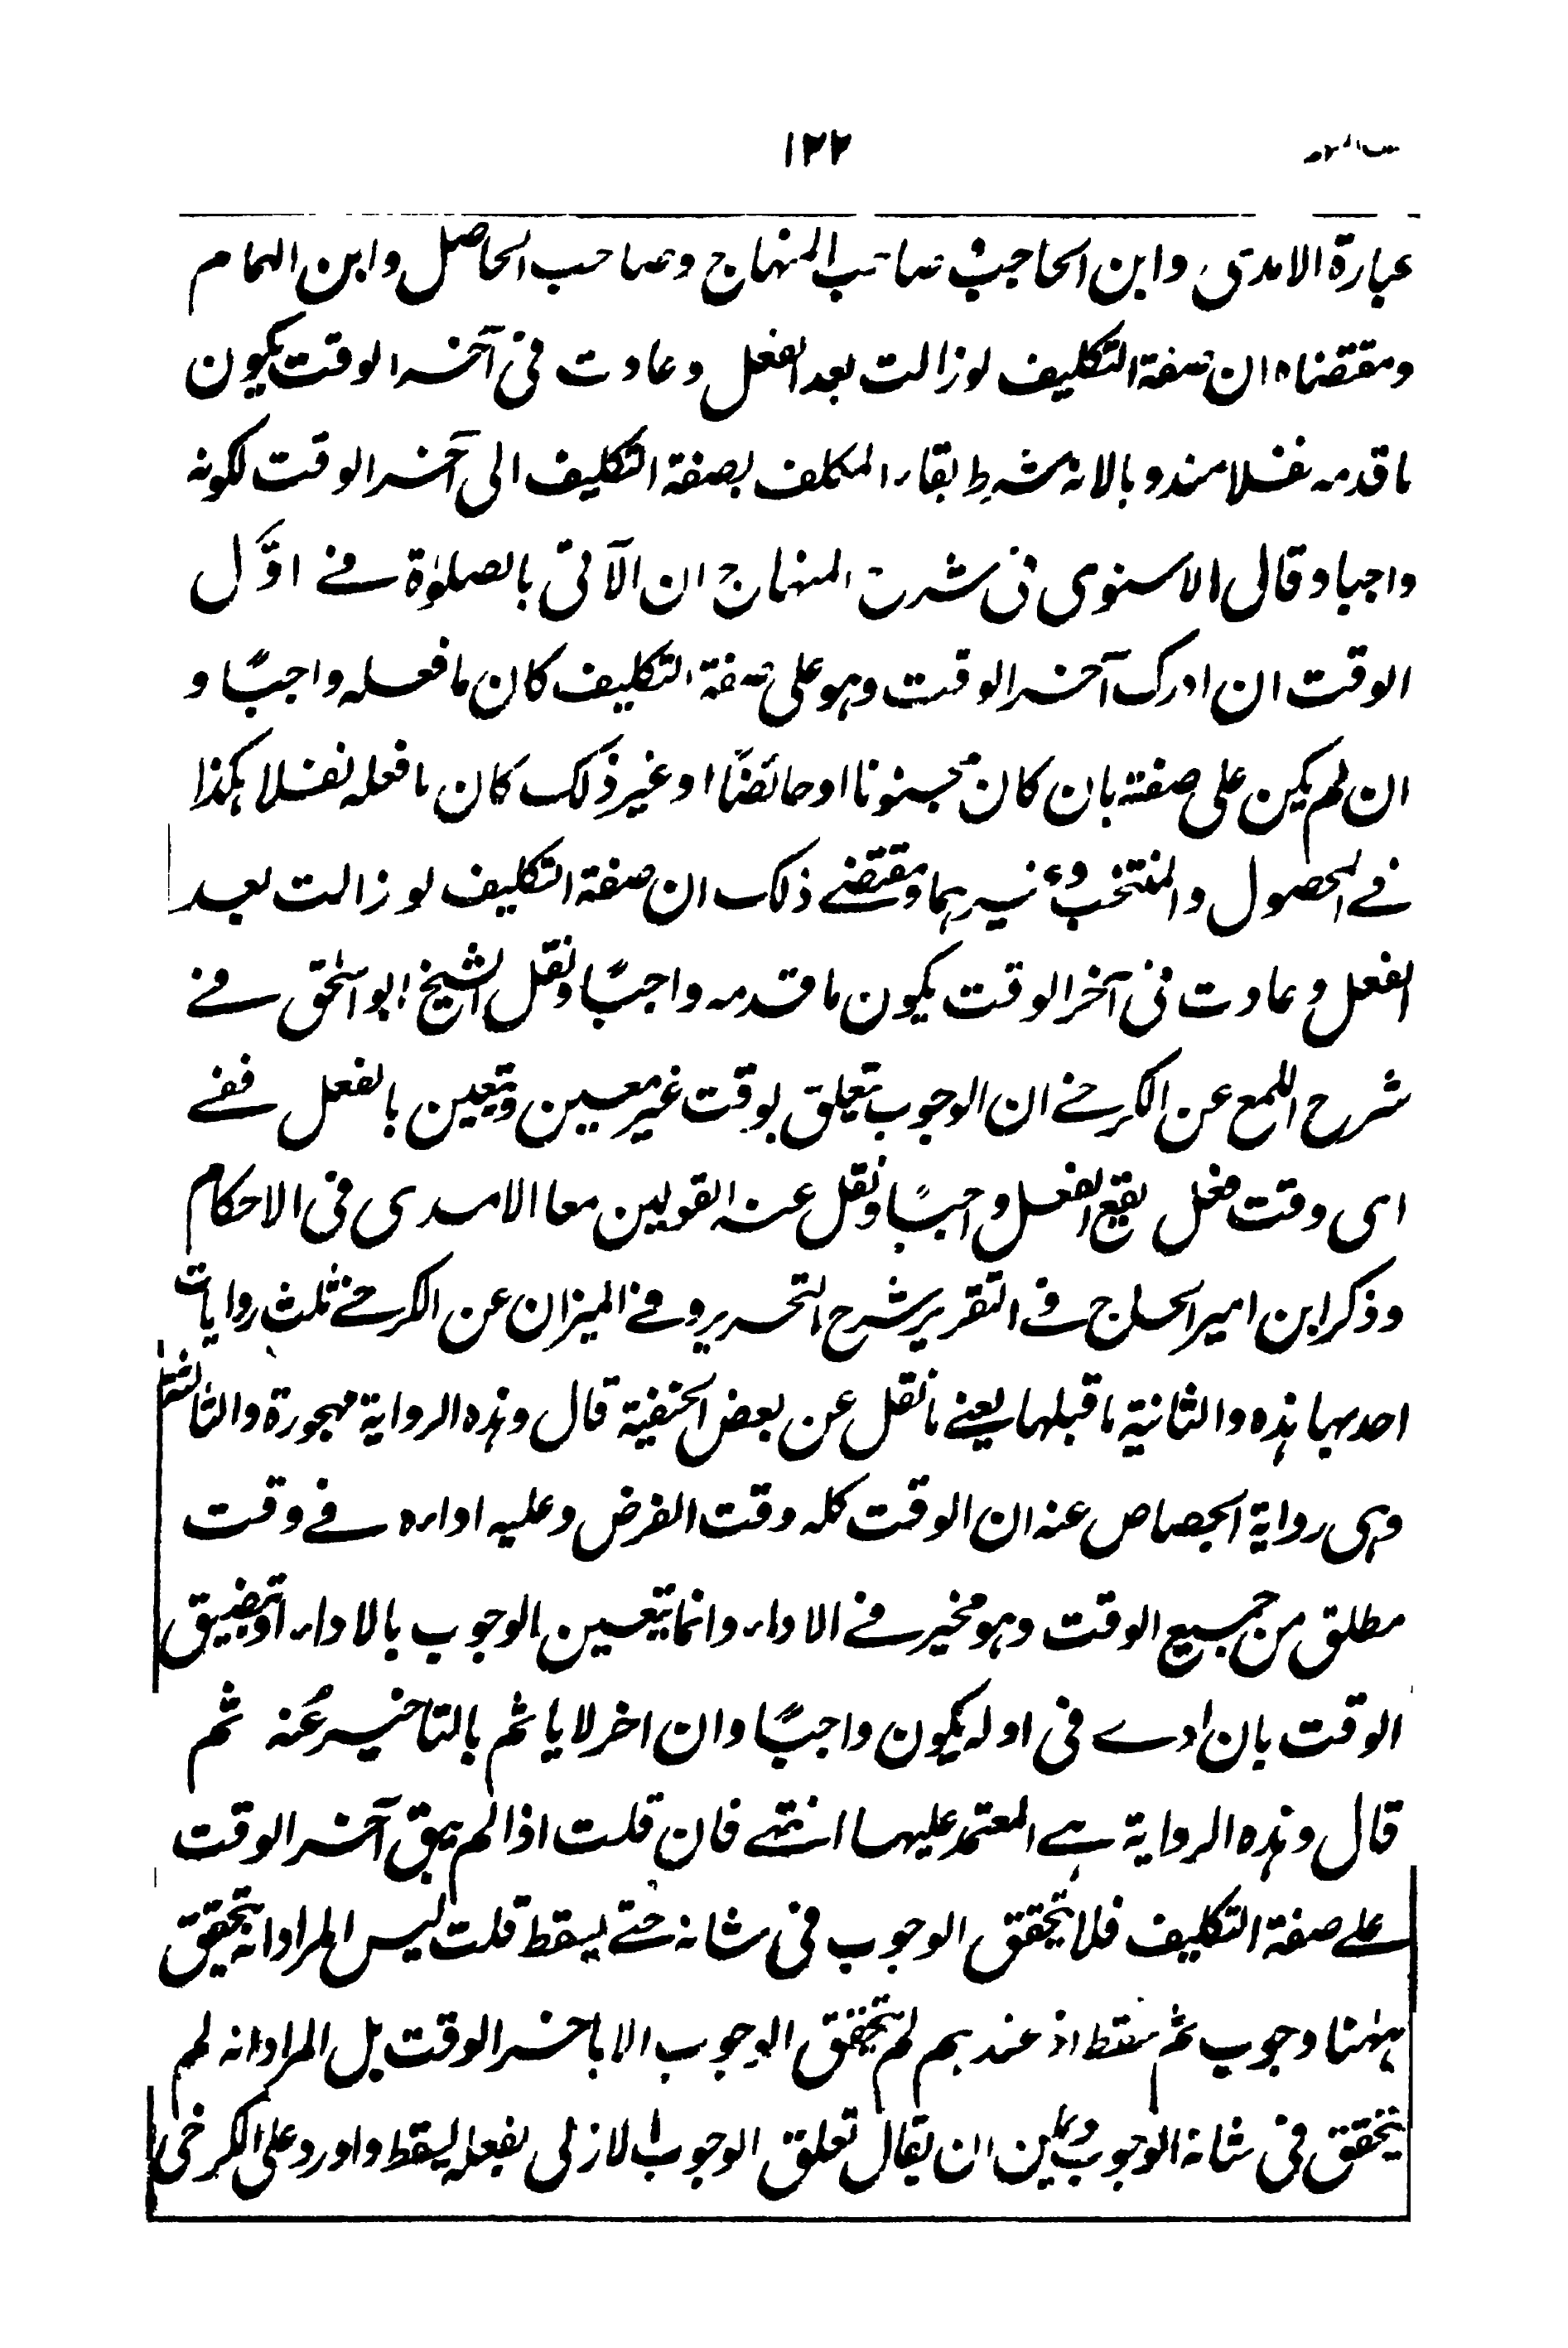 ١٢٢
عبارة الامدى وابن الحاجب وصاحب المنهاج وصاحب الحاصل وابن الهمام
ومقتضاه ان صفة التكليف لو زالت بعد الفعل وعادت فى آخر الوقت يكون
ما قدمه نفلا مندوبا لانه شرط بقاء المكلف بصفة التكليف الى آخر الوقت لكونه
واجبا وقال الاسنوى فى شرح المنهاج ان الآتى بالصلوٰة فے اوَّل
الوقت ان ادرك آخر الوقت وهو على صفة التكليف كان ما فعله واجبًا و
ان لم يكن على صفته بان كان مجنونا او حائضًا او غير ذلك كان ما فعله نفلا هكذا
فے المحصول والمنتخب وغيرهما ومقتضے ذلك ان صفة التكليف لو زالت بعد
الفعل وعادت فى آخر الوقت يكون ما قدمه واجبًا ونقل الشيخ ابو اسحٰق فے
شرح اللمع عن الكرخے ان الوجوب يتعلق بوقت غير معين ويتعين بالفعل ففے
اى وقت فعل يقع الفعل واجبًا ونقل عنه القولين معا الامدى فى الاحكام
وذكر ابن امير الحاج فے التقرير شرح التحرير وفے الميزان عن الكرخے ثلٰث روايات
احدٰهما هذه والثانية ما قبلها يعنے ما نقل عن بعض الحنفية قال وهذه الرواية مهجورة والثالثة
وهى رواية الجصاص عنه ان الوقت كله وقت الفرض وعليه اداءه فے وقت
مطلق من جميع الوقت وهو مخير فے الاداء وانما يتعين الوجوب بالاداء او بتضييق
الوقت بان ادے فى اوله يكون واجبًا وان اخر لا ياثم بالتاخير عنه ثم
قال وهذه الرواية هے المعتمد عليها انتهے فان قلت اذا لم يبق آخر الوقت
علے صفة التكليف فلا يتحقق الوجوب فى شانه حتے يسقط قلت ليس المراد انه يتحقق
ههنا وجوب ثم سقط اذ عندهم لم يتحقق الوجوب الا باخر الوقت بل المراد انه لم
يتحقق فى شانه الوجوب ويمكن ان يقال تعلق الوجوب الازلى بفعله ليسقط واورد على الكرخى